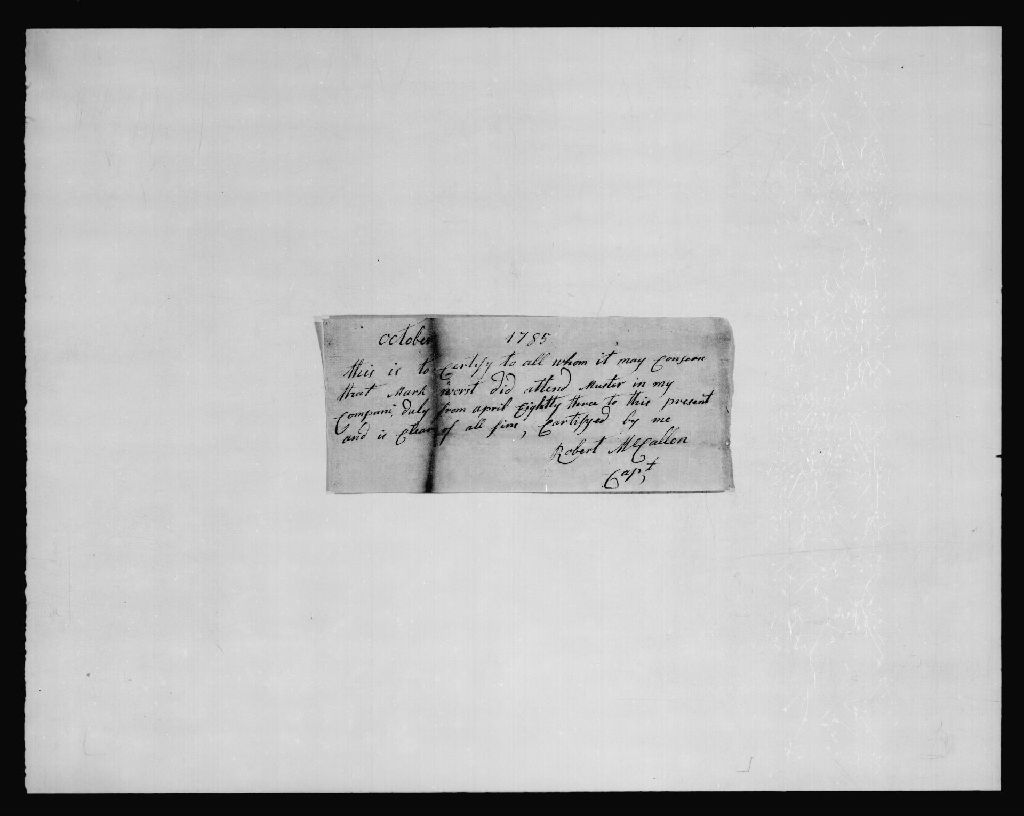 october 1785
this is to certify to all whom it may Consern
that Mark worst did attend Muster in my
Compani, duly from april Eightty three to this present
and is Clear of all fins, Cartifyed by me
Robert McCallen
Capt